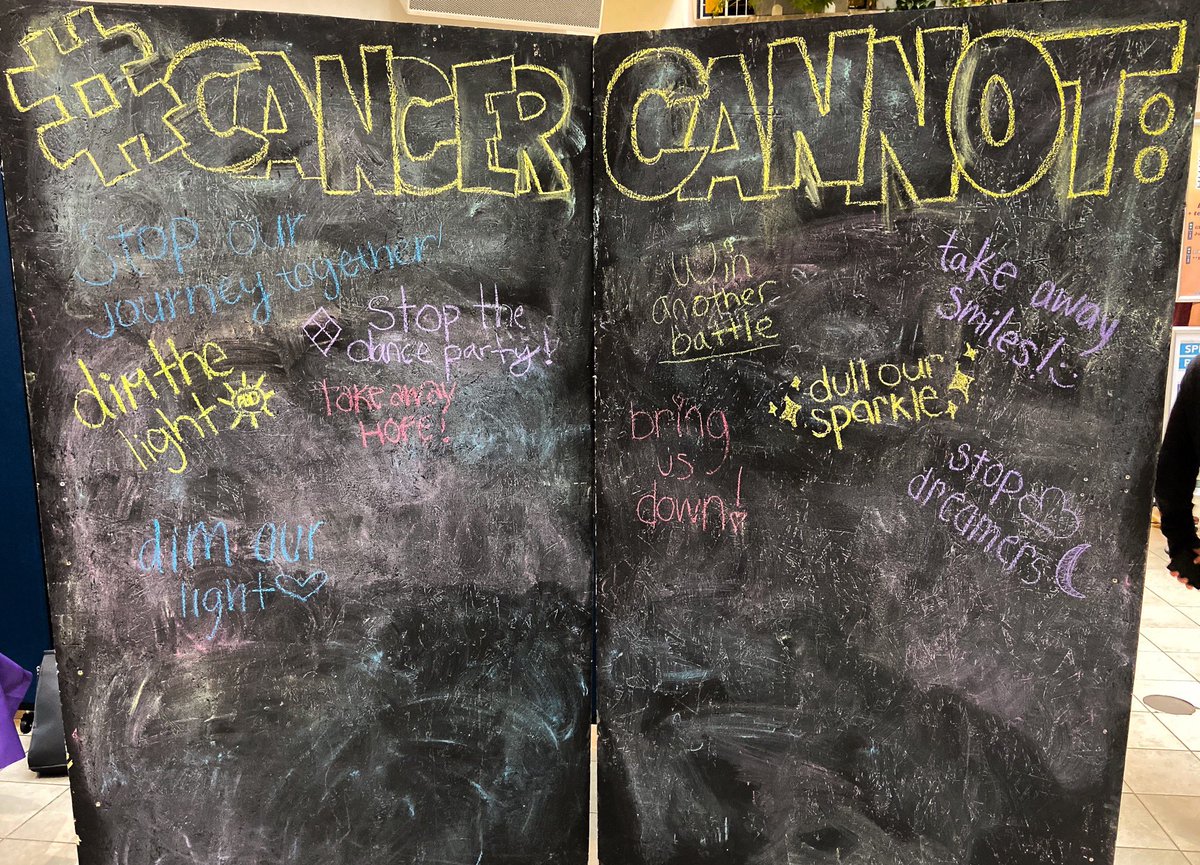 #CANCER CANNOT:
Stop our
journey together!
Stop the
dance party!
dim the
light
Take away
HOPE!
dim our
light
Win
another
battle
take away
smiles!
dull our
sparkle
bring
us
down!
stop
dreamers